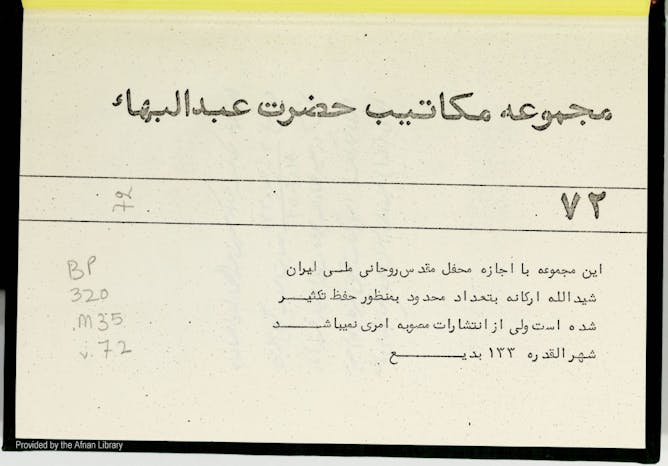 مجموعه مكاتيب حضرت عبدالبهاء
۷۲
72
اين مجموعه با اجازه محفل مقدس روحانی ملی ايران
شيدالله اركانه بتعداد محدود بمنظور حفظ تكثيـــر
شده است ولی از انتشارات مصوبه امری نميباشــــد
شهرالقدره ۱۳۳ بديـــــع
BP
320
.M35
v.72
Provided by the Afnan Library